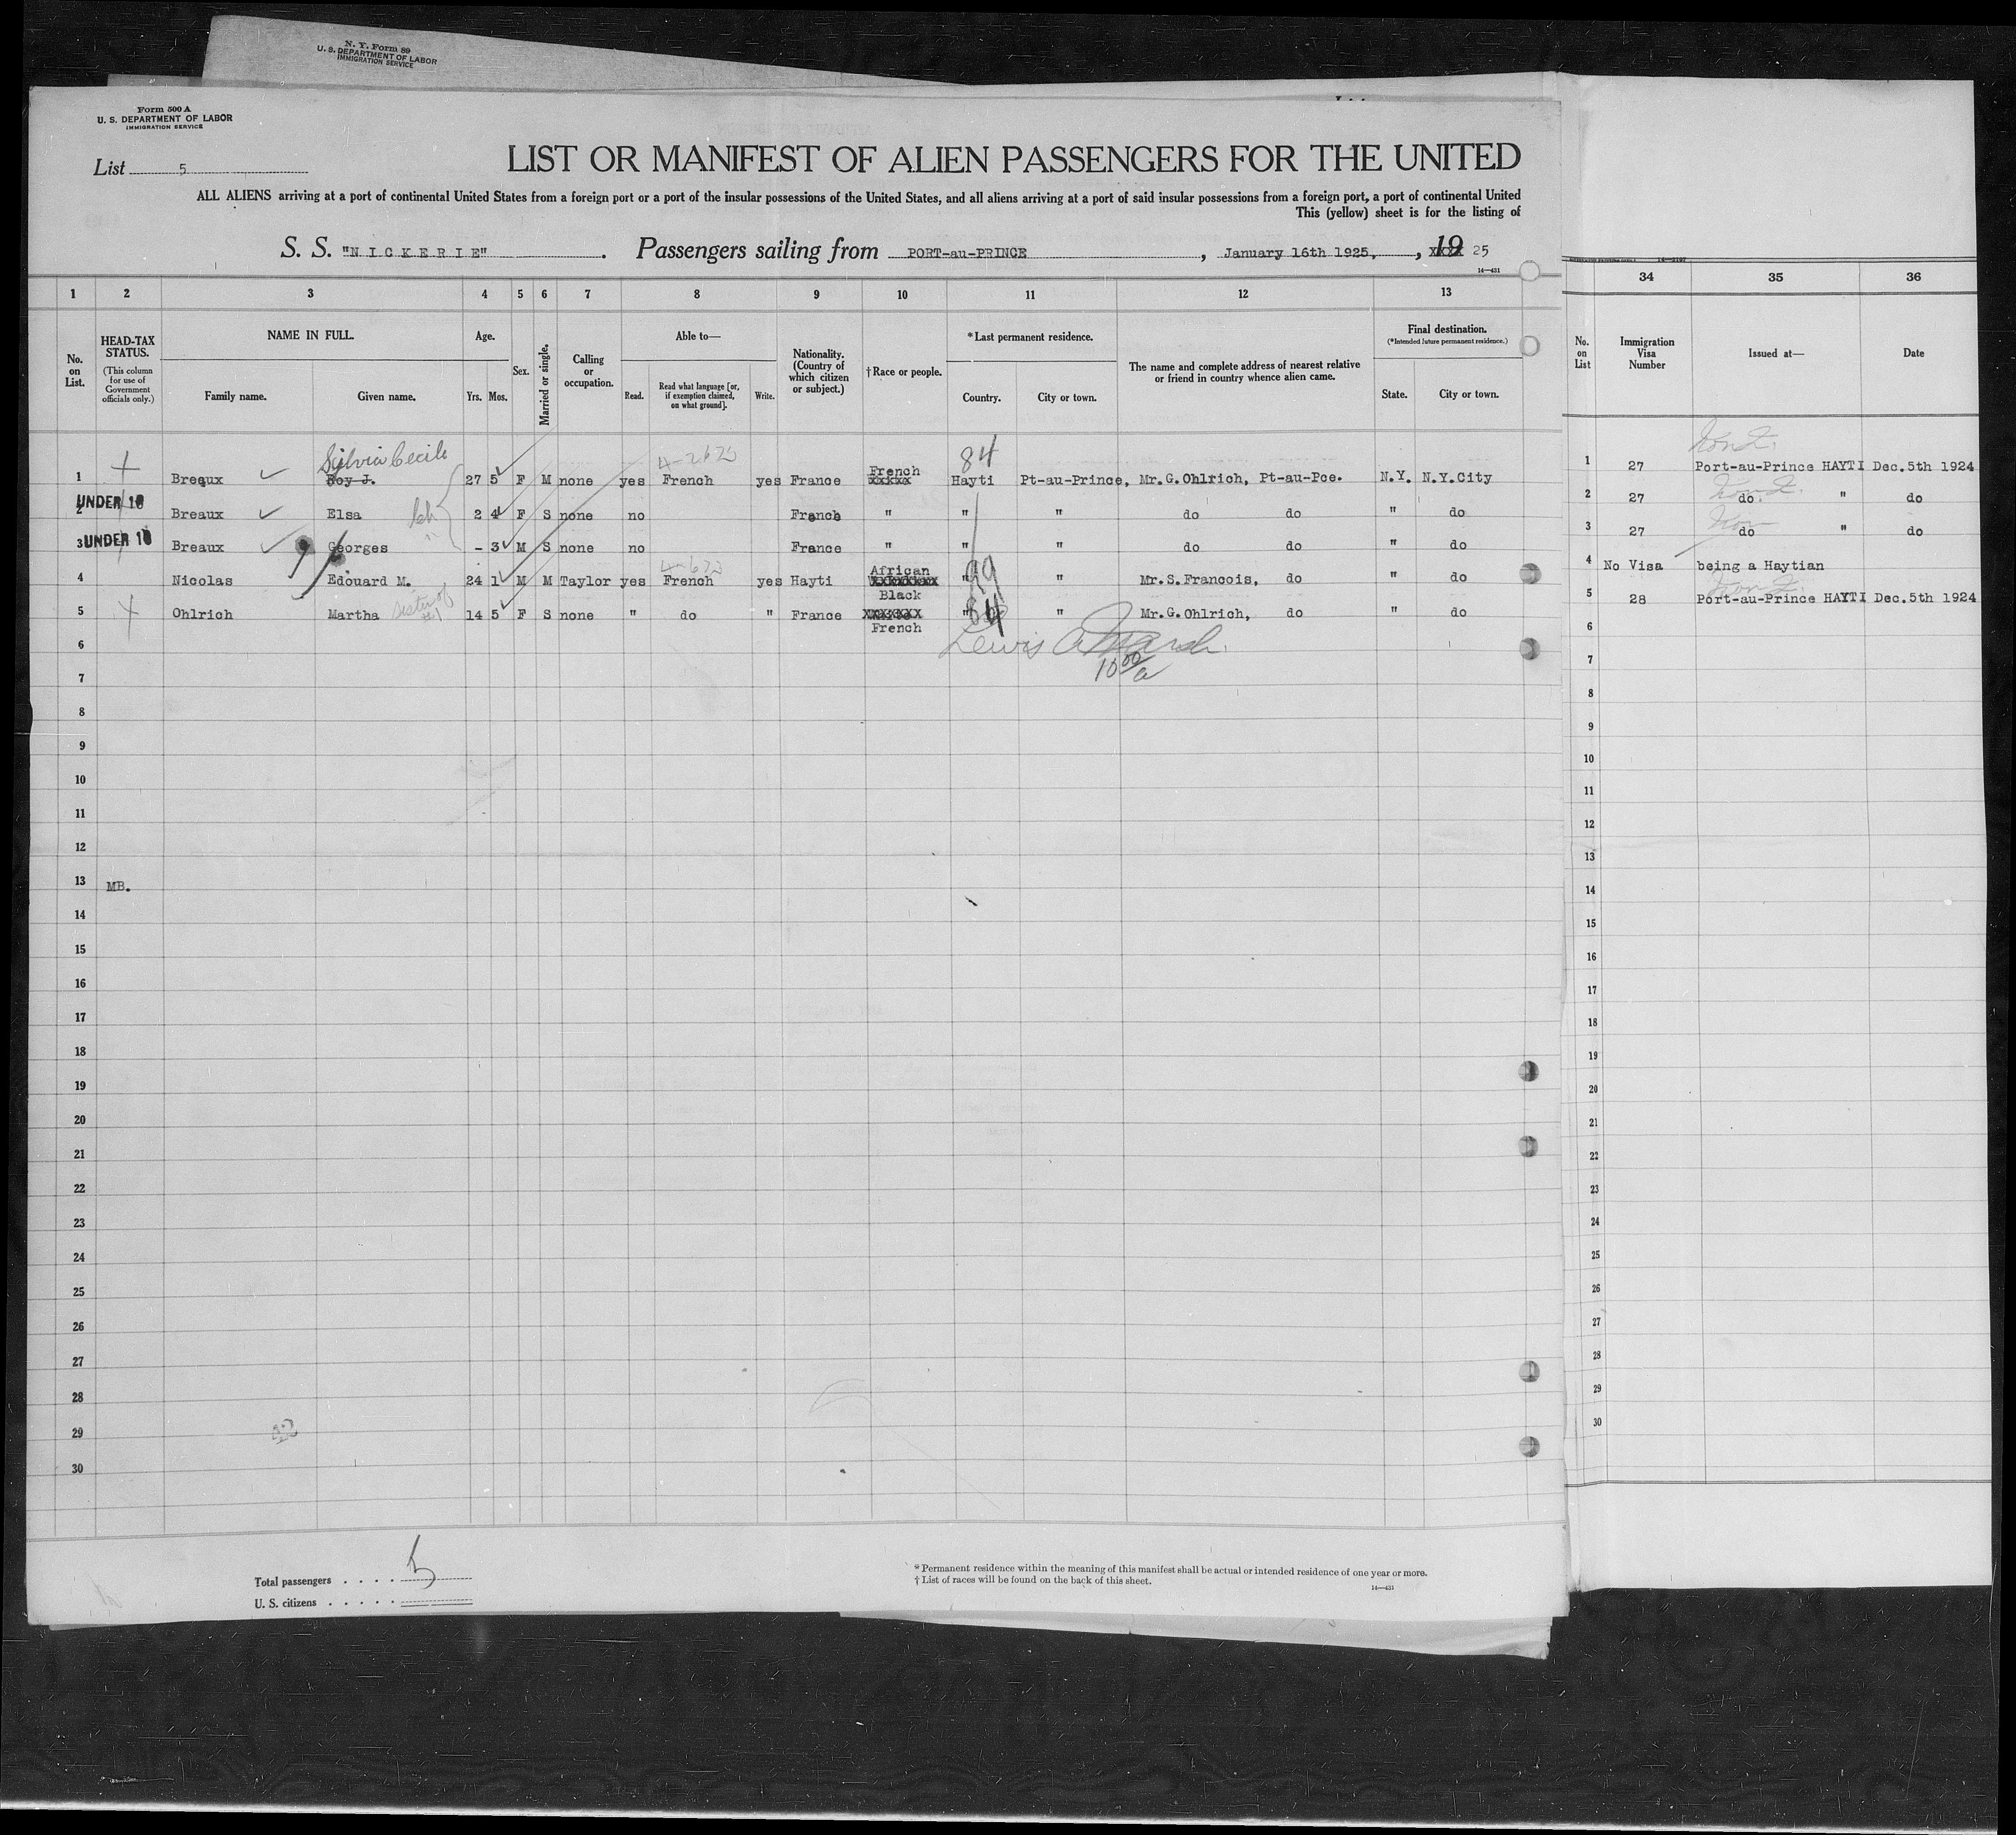 N. Y. Form 89
U. S. DEPARTMENT OF LABOR
IMMIGRATION SERVICE
Form 500 A
U. S. DEPARTMENT OF LABOR
IMMIGRATION SERVICE
List 5
LIST OR MANIFEST OF ALIEN PASSENGERS FOR THE UNITED
ALL ALIENS arriving at a port of continental United States from a foreign port or a port of the insular possessions of the United States, and all aliens arriving at a port of said insular possessions from a foreign port, a port of continental United
This (yellow) sheet is for the listing of
S. S. "NICKERIE". Passengers sailing from PORT-au-PRINCE, January 16th 1925, , 19 25
14—431
1 2 3 4 5 6 7 8 9 10 11 12 13 34 35 36
No. on List.
HEAD-TAX STATUS.
(This column for use of Government officials only.)
NAME IN FULL.
Family name. Given name.
Age.
Yrs. Mos.
Sex.
Married or single.
Calling or occupation.
Able to—
Read. Read what language [or, if exemption claimed, on what ground]. Write.
Nationality. (Country of which citizen or subject.)
†Race or people.
*Last permanent residence.
Country. City or town.
The name and complete address of nearest relative or friend in country whence alien came.
Final destination.
(*Intended future permanent residence.)
State. City or town.
No. on List
Immigration Visa Number
Issued at—
Date
Sylvia Cecile
1 Breaux Roy J. 27 5 F M none yes French yes France French Hayti Pt-au-Prince, Mr.G.Ohlrich, Pt-au-Pce. N.Y. N.Y.City
84
1 27 Port-au-Prince HAYTI Dec.5th 1924
UNDER 16
2 Breaux Elsa 2 4 F S none no French " " " do do " do
2 27 do. " do
UNDER 16
3 Breaux Georges - 3 M S none no France " " " do do " do
3 27 do " do
4 Nicolas Edouard M. 24 1 M M Taylor yes French yes Hayti African Black " " Mr.S.Francois, do " do
4 No Visa being a Haytian
5 Ohlrich Martha sister of #1 14 5 F S none " do " France French " " Mr.G.Ohlrich, do " do
84
5 28 Port-au-Prince HAYTI Dec.5th 1924
Lewis
10 00/a
6
7
8
9
10
11
12
13 MB.
14
15
16
17
18
19
20
21
22
23
24
25
26
27
28
29
30
6
7
8
9
10
11
12
13
14
15
16
17
18
19
20
21
22
23
24
25
26
27
28
29
30
Total passengers . . . . 5
U. S. citizens . . . . .
* Permanent residence within the meaning of this manifest shall be actual or intended residence of one year or more.
† List of races will be found on the back of this sheet.
14—431